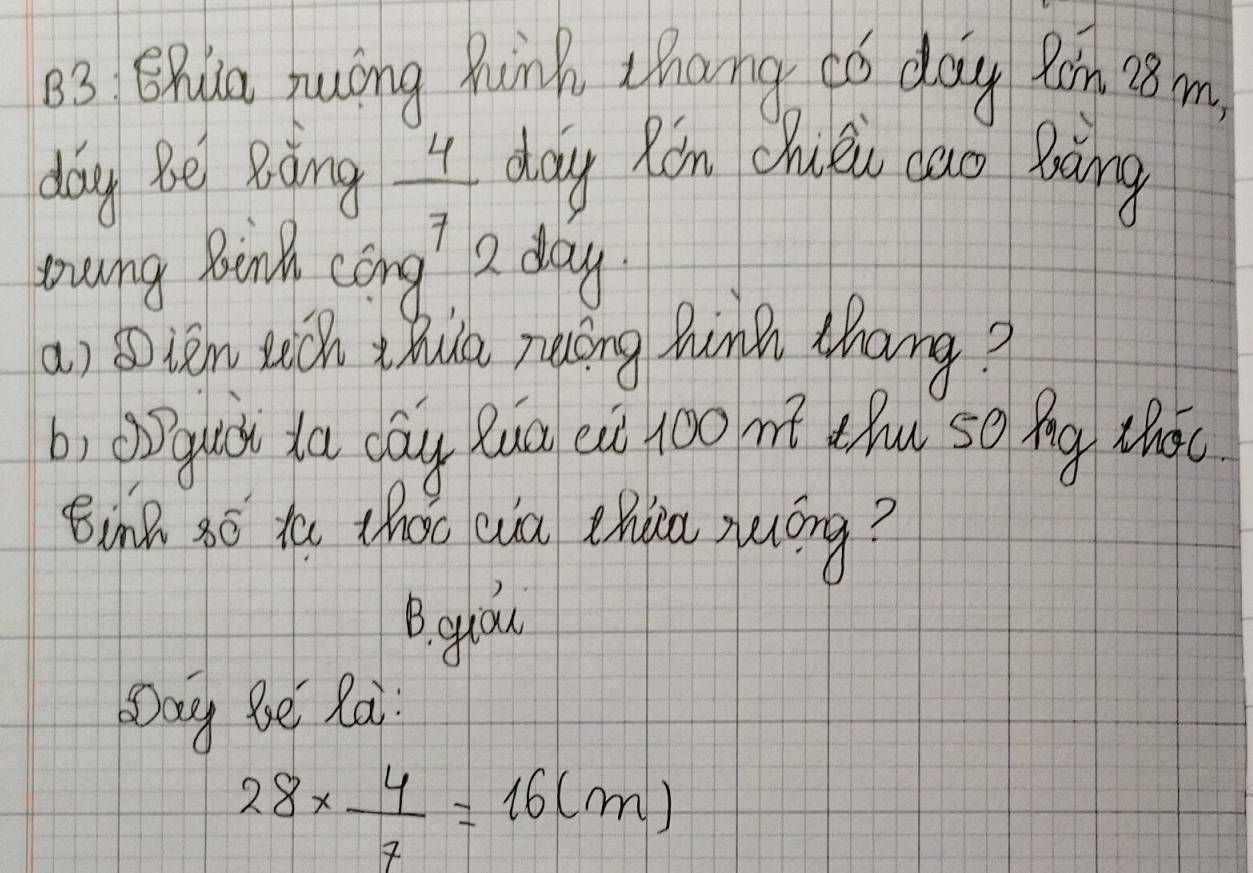 B3: Thửa ruộng hình thang có đáy lớn 28 m,
đáy bé bằng 4/7 đáy lớn chiều cao bằng
trung bình cộng 2 đáy.
a) Diện tích thửa ruộng hình thang?
b) Người ta cấy lúa cứ 100 m² thu 50 kg thóc.
Tính số tạ thóc của thửa ruộng?
B.giải
Đáy bé là:
28 × 4/7 = 16 (m)